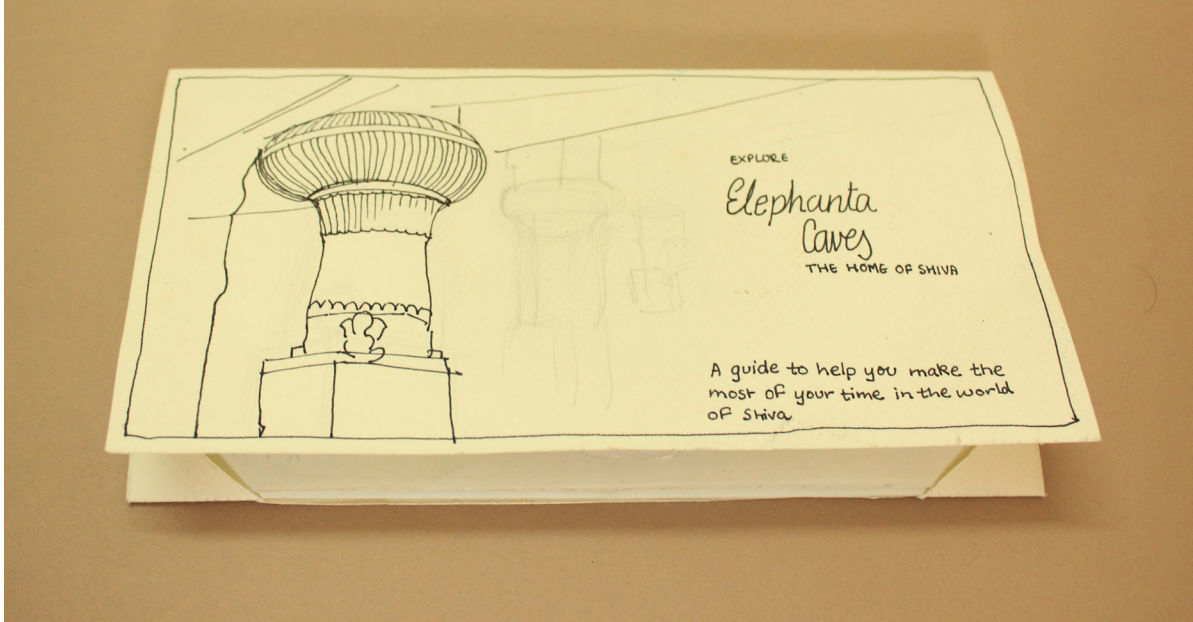 EXPLORE
Elephanta
Caves
THE HOME OF SHIVA
A guide to help you make the
most of your time in the world
of Shiva